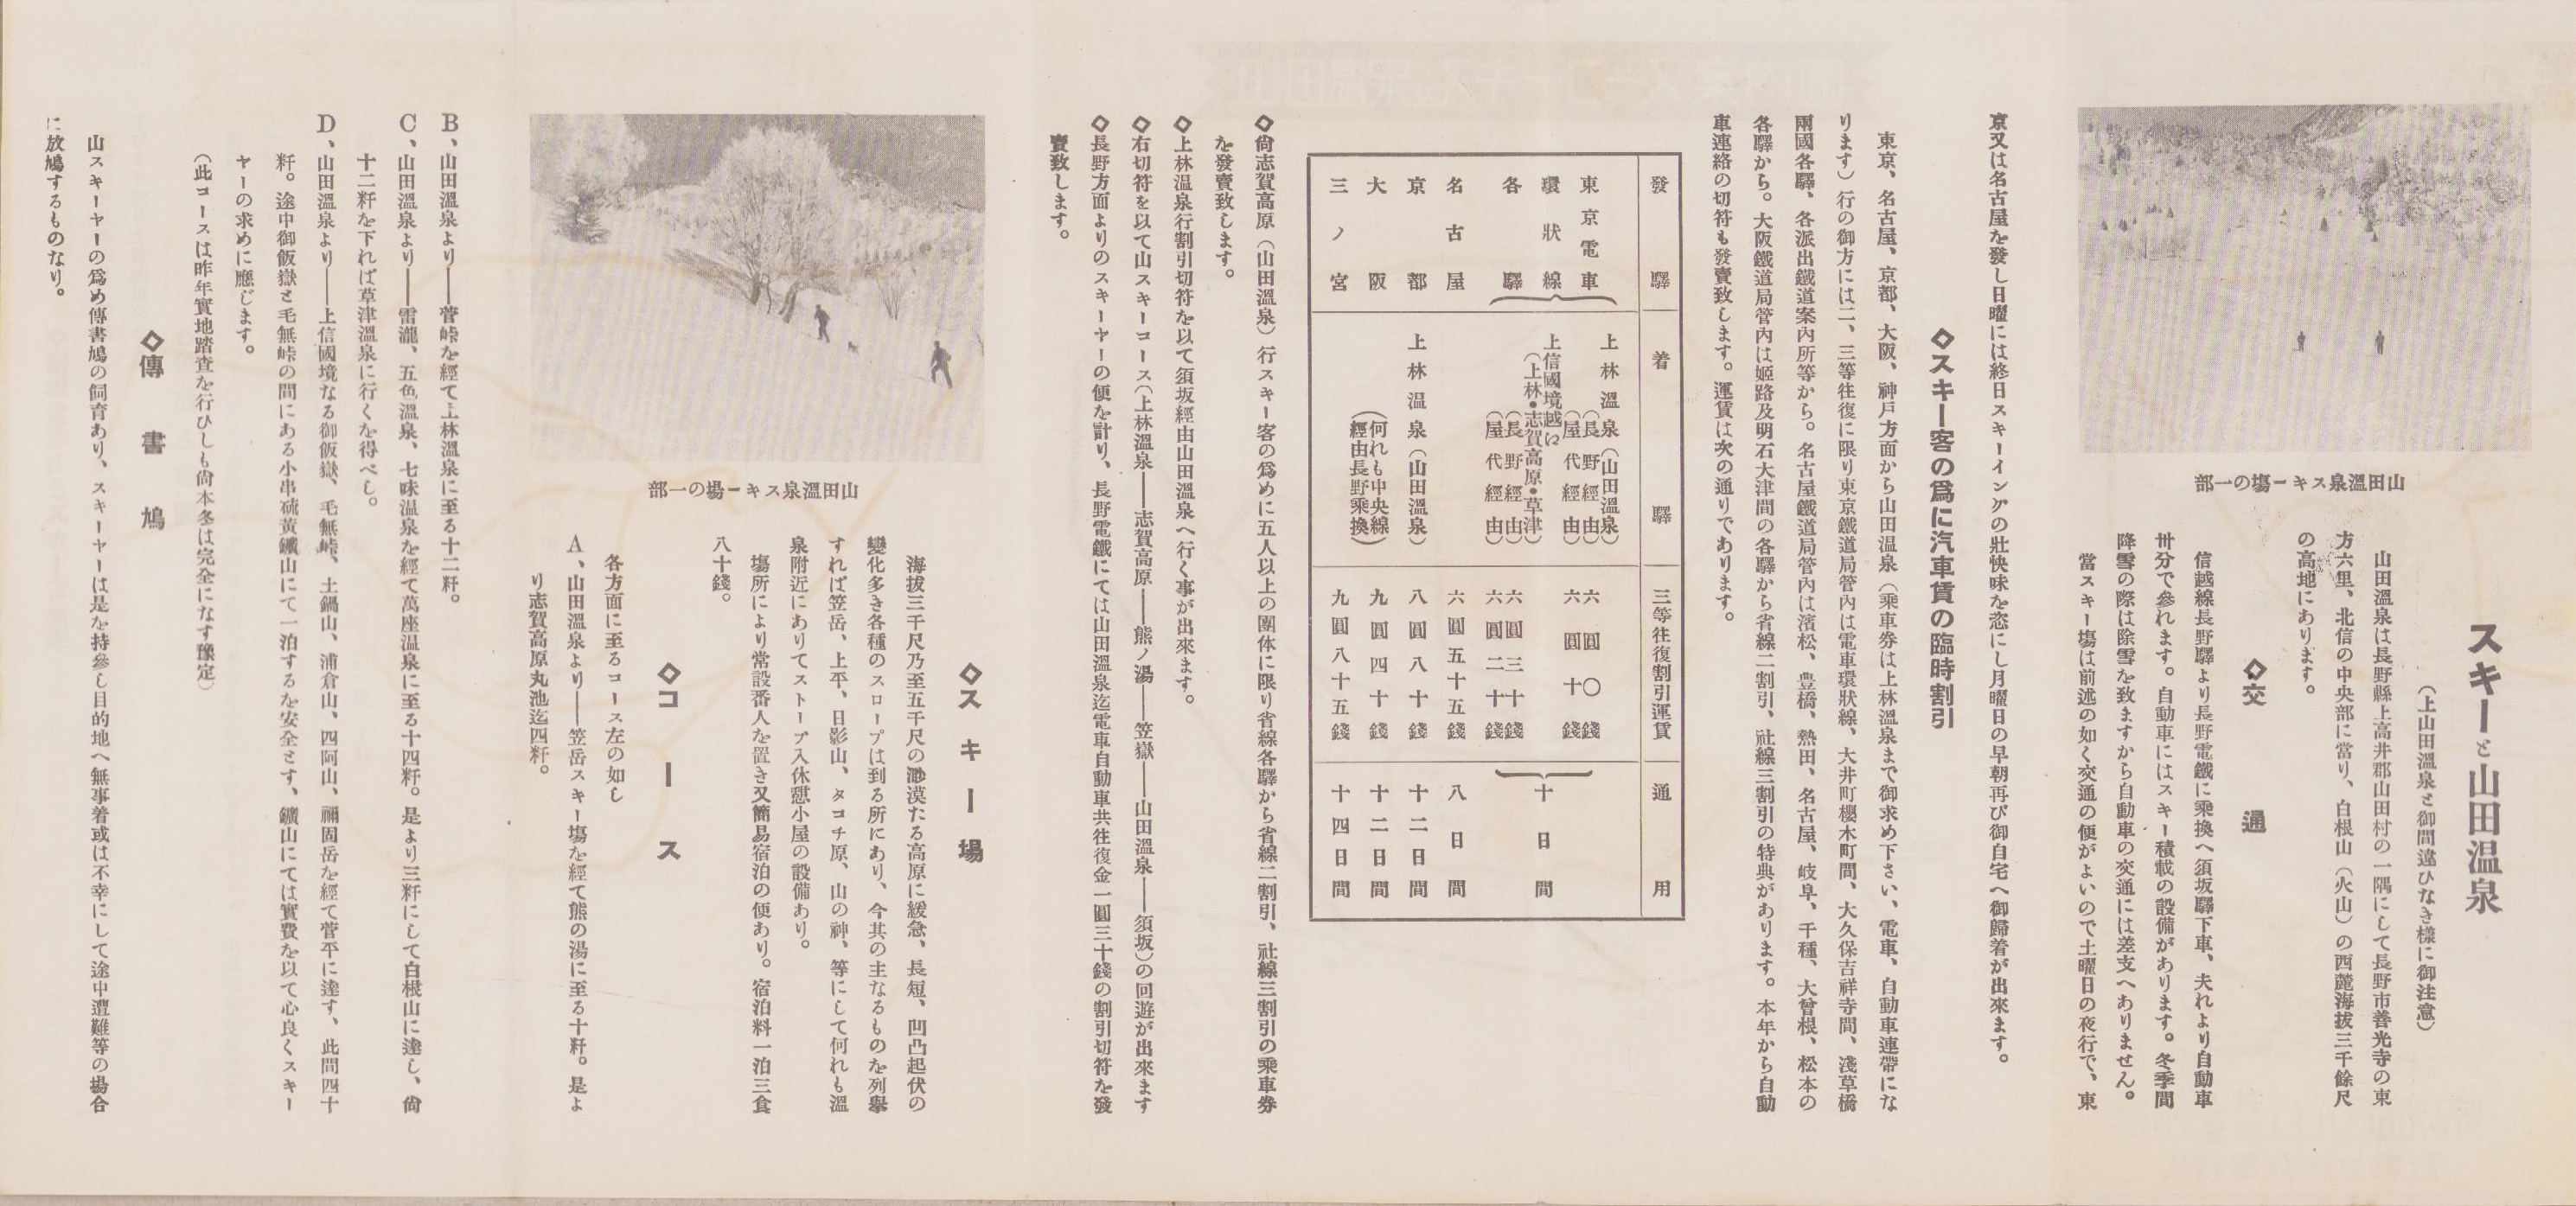 スキーと山田温泉
（上山田溫泉と御間違ひなき樣に御注意）
山田溫泉は長野縣上高井郡山田村の一隅にして長野市善光寺の東
方六里、北信の中央部に當り、白根山（火山）の西麓海拔三千餘尺
の高地にあります。
◇交通
信越線長野驛より長野電鐵に乘換へ須坂驛下車、夫れより自動車
卅分で參れます。自動車にはスキー積載の設備があります。冬季間
降雪の際は除雪を致ますから自動車の交通には差支へありません。
當スキー場は前述の如く交通の便がよいので土曜日の夜行で、東
山田溫泉スキー場の一部
京又は名古屋を發し日曜には終日スキーイングの壯快味を恣にし月曜日の早朝再び御自宅へ御歸着が出來ます。
◇スキー客の爲に汽車賃の臨時割引
東京、名古屋、京都、大阪、神戸方面から山田温泉（乘車券は上林溫泉まで御求め下さい、電車、自動車連帶にな
ります）行の御方には二、三等往復に限り東京鐵道局管內は電車環狀線、大井町櫻木町間、大久保吉祥寺間、淺草橋
兩國各驛、各派出鐵道案內所等から。名古屋鐵道局管內は濱松、豊橋、熱田、名古屋、岐阜、千種、大曾根、松本の
各驛から。大阪鐵道局管內は姬路及明石大津間の各驛から省線二割引、社線三割引の特典があります。本年から自動
車連絡の切符も發賣致します。運賃は次の通りであります。
發驛　着驛　三等往復割引運賃　通用
東京電車環狀線各驛
上林溫泉（山田溫泉）
（長野經由）　六圓〇錢
（屋代經由）　六圓十錢
上信國境越に（上林・志賀高原・草津）
（長野經由）　六圓三十錢
（屋代經由）　六圓二十錢
十日間
名古屋　六圓五十五錢　八日間
京都　上林溫泉（山田溫泉）　八圓八十錢　十二日間
大阪　（何れも中央線　九圓四十錢　十二日間
三ノ宮　經由長野乘換）　九圓八十五錢　十四日間
◇尙志賀高原（山田溫泉）行スキー客の爲めに五人以上の團体に限り省線各驛から省線二割引、社線三割引の乘車券
を發賣致します。
◇上林溫泉行割引切符を以て須坂經由山田溫泉へ行く事が出來ます。
◇右切符を以て山スキーコース（上林溫泉――志賀高原――熊ノ湯――笠嶽――山田溫泉――須坂）の回遊が出來ます
◇長野方面よりのスキーヤーの便を計り、長野電鐵にては山田溫泉迄電車自動車共往復金一圓三十錢の割引切符を發
賣致します。
◇スキー場
海拔三千尺乃至五千尺の渺漠たる高原に緩急、長短、凹凸起伏の
變化多き各種のスロープは到る所にあり、今其の主なるものを列擧
すれば笠岳、上平、日影山、タコチ原、山の神、等にして何れも溫
泉附近にありてストーブ入休憩小屋の設備あり。
場所により常設番人を置き又簡易宿泊の便あり。宿泊料一泊三食
八十錢。
◇コース
各方面に至るコース左の如し
A、山田溫泉より――笠岳スキー場を經て熊の湯に至る十粁。是よ
り志賀高原丸池迄四粁。
山田溫泉スキー場の一部
B、山田溫泉より――菅峠を經て上林溫泉に至る十二粁。
C、山田溫泉より――雷瀧、五色溫泉、七味溫泉を經て萬座溫泉に至る十四粁。是より三粁にして白根山に達し、尙
十二粁を下れば草津溫泉に行くを得べし。
D、山田溫泉より――上信國境なる御飯嶽、毛無峠、土鍋山、浦倉山、四阿山、禰固岳を經て菅平に達す、此間四十
粁。途中御飯嶽と毛無峠の間にある小串硫黃鑛山にて一泊するを安全とす、鑛山にては實費を以て心良くスキー
ヤーの求めに應じます。
（此コースは昨年實地踏査を行ひしも尙本冬は完全になす豫定）
◇傳書鳩
山スキーヤーの爲め傳書鳩の飼育あり、スキーヤーは是を持參し目的地へ無事着或は不幸にして途中遭難等の場合
に放鳩するものなり。